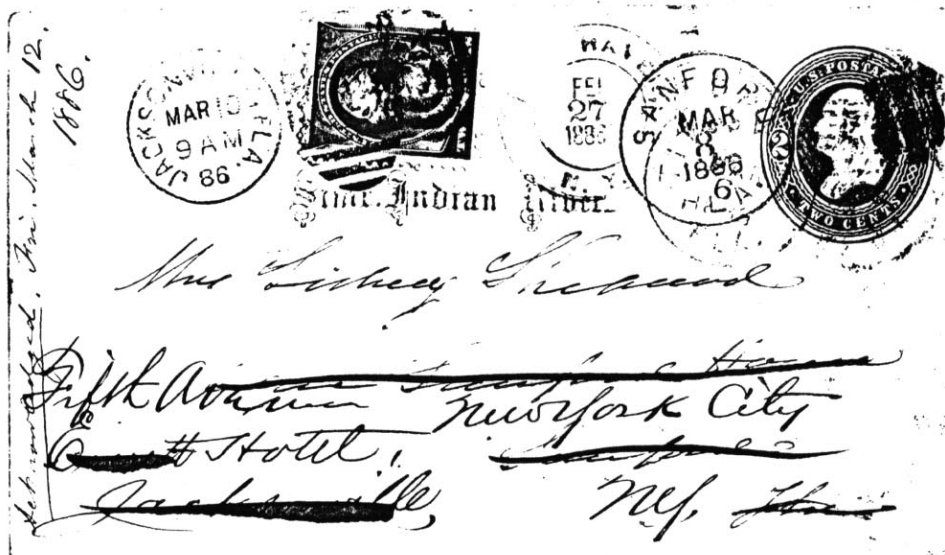 Acknowledged. Fri. March 12.
1886.
JACKSONVILLE FLA.
MAR 10
9 AM
86
FEB
27
1886
N.Y.
SANFORD
MAR
8
1886
FLA.
6
U.S. POSTAGE
2 2
TWO CENTS
Str. Indian River
Mrs Sidney Shepard
Fifth Avenue
New York City
Hotel,
Sanford
Jacksonville,
N.Y. Fla